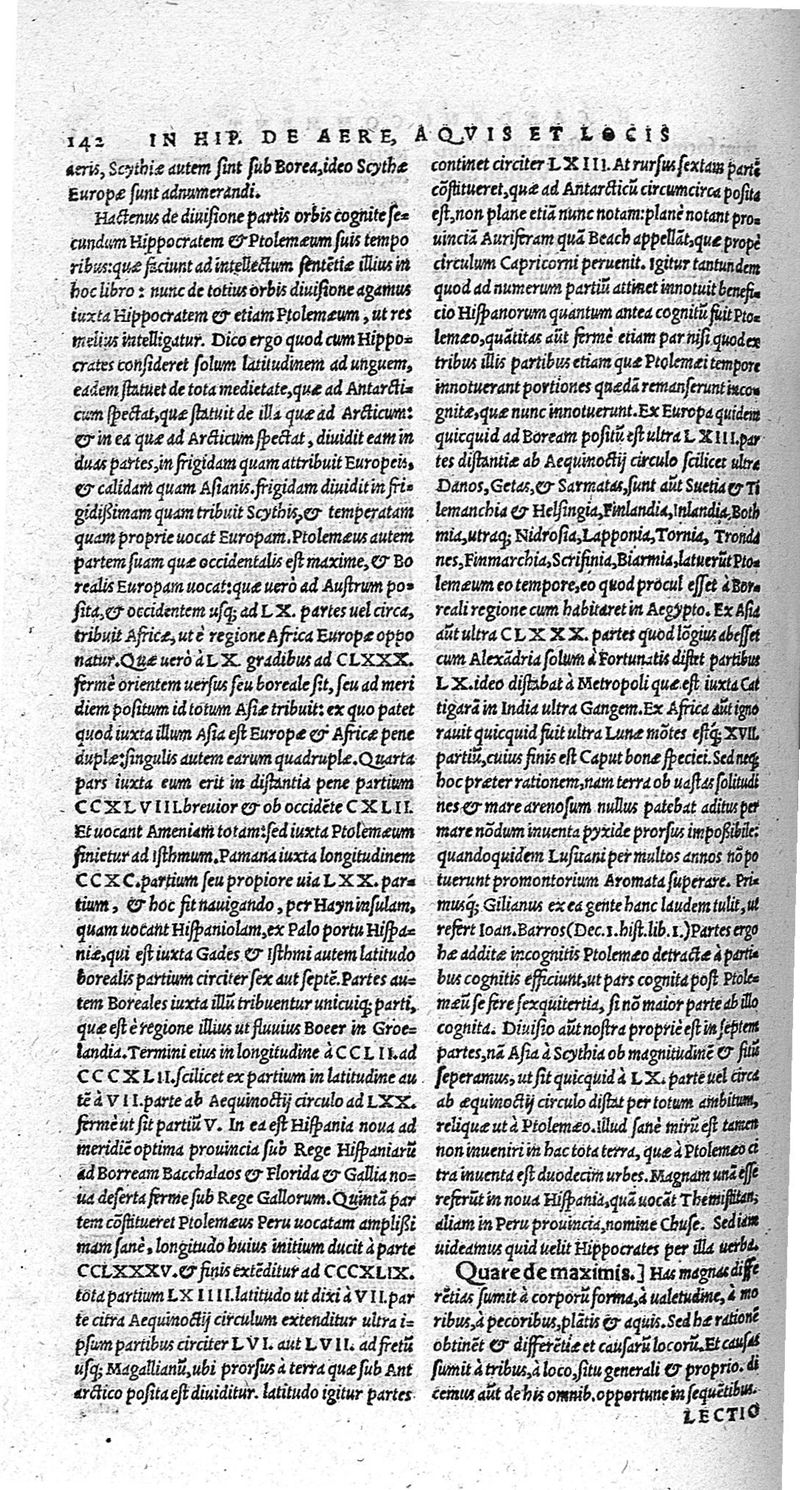 142 IN HIP. DE AERE, AQVIS ET LOCIS
aeris, Scythiæ autem sint sub Borea, ideo Scythæ
Europæ sunt adnumerandi.
Hactenus de diuisione partis orbis cognite se-
cundum Hippocratem & Ptolemæum suis tempo
ribus: quæ faciunt ad intellectum sentẽtiæ illius in
hoc libro: nunc de totius orbis diuisione agamus
iuxta Hippocratem & etiam Ptolemæum, ut res
melius intelligatur. Dico ergo quod cum Hippo-
crates consideret solum latitudinem ad unguem,
eadem statuet de tota medietate, quæ ad Antarcti-
cum spectat, quæ statuit de illa quæ ad Arcticum:
& in ea quæ ad Arcticum spectat, diuidit eam in
duas partes, in frigidam quam attribuit Europeis,
& calidam quam Asianis. frigidam diuidit in fri-
gidißimam quam tribuit Scythis, & temperatam
quam proprie uocat Europam. Ptolemæus autem
partem suam quæ occidentalis est maxime, & Bo
realis Europam uocat: quæ uerò ad Austrum po-
sita, & occidentem usq; ad LX. partes uel circa,
tribuit Africæ, ut è regione Africa Europæ oppo
natur. Quæ uerò à LX. gradibus ad CLXXX.
fermè orientem uersus seu boreale sit, seu ad meri
diem positum id totum Asiæ tribuit: ex quo patet
quod iuxta illum Asia est Europæ & Africæ pene
duplæ: singulis autem earum quadruplæ. Quarta
pars iuxta eum erit in distantia pene partium
CCXLVIII. breuior & ob occidẽte CXLII.
Et uocant Ameniam totam: sed iuxta Ptolemæum
finietur ad Isthmum. Pamana iuxta longitudinem
CCXC. partium seu propiore uia LXX. par-
tium, & hoc fit nauigando, per Hayn insulam,
quam uocant Hispaniolam, ex Palo portu Hispa-
niæ, qui est iuxta Gades & Isthmi autem latitudo
borealis partium circiter sex aut septẽ. Partes au-
tem Boreales iuxta illũ tribuentur unicuiq; parti,
quæ est è regione illius ut fluuius Boeer in Groe-
landia. Termini eius in longitudine à CCLII. ad
CCCXLII. scilicet ex partium in latitudine au
tẽ à VII. parte ab Aequinoctij circulo ad LXX.
fermè ut sit partiũ V. In ea est Hispania noua ad
meridiẽ optima prouincia sub Rege Hispaniarũ
ad Borream Bacchalaos & Florida & Gallia no-
ua deserta ferme sub Rege Gallorum. Quintã par
tem cõstitueret Ptolemæus Peru uocatam amplißi
mam sanè, longitudo huius initium ducit à parte
CCLXXXV. & finis extẽditur ad CCCXLIX.
tota partium LXIIII. latitudo ut dixi à VII. par
te citra Aequinoctij circulum extenditur ultra i-
psum partibus circiter LVI. aut LVII. ad fretũ
usq; Magallianũ, ubi prorsus à terra quæ sub Ant
arctico posita est diuiditur. latitudo igitur partes
continet circiter LXIII. At rursus sextam partẽ
cõstitueret, quæ ad Antarcticũ circumcirca posita
est, non plane etiã nunc notam: planè notant pro-
uinciã Auriferam quã Beach appellãt, quæ propè
circulum Capricorni peruenit. Igitur tantundem
quod ad numerum partiũ attinet innotuit benefi-
cio Hispanorum quantum antea cognitũ fuit Pto-
lemæo, quãtitas aũt fermè etiam par nisi quod ex
tribus illis partibus etiam quæ Ptolemæi tempore
innotuerant portiones quædã remanserunt inco-
gnitæ, quæ nunc innotuerunt. Ex Europa quidem
quicquid ad Boream positũ est ultra LXIII. par
tes distantiæ ab Aequinoctij circulo scilicet ultra
Danos, Getas, & Sarmatas, sunt aũt Suetia & Ti
lemanchia & Helsingia, Finlandia, Inlandia, Both
mia, utraq; Nidrosia, Lapponia, Tornia, Tronda
nes, Finmarchia, Scrifinia, Biarmia, latuerũt Pto-
lemæum eo tempore, eo quod procul esset à Bor-
reali regione cum habitaret in Aegypto. Ex Asia
aũt ultra CLXXX. partes quod lõgius abesset
cum Alexãdria solum à Fortunatis distet partibus
LX. ideo distabat à Metropoli quæ est iuxta Cat
tigarã in India ultra Gangem. Ex Africa aũt igno
rauit quicquid fuit ultra Lunæ mõtes estq; XVII.
partiũ, cuius finis est Caput bonæ speciei. Sed neq;
hoc præter rationem, nam terra ob uastas solitudi
nes & mare arenosum nullus patebat aditus per
mare nõdum inuenta pyxide prorsus impoßibile:
quandoquidem Lusitani per multos annos nõ po
tuerunt promontorium Aromata superare. Pri-
musq; Gilianus ex ea gente hanc laudem tulit, ut
refert Ioan. Barros (Dec. 1. hist. lib. 1.) Partes ergo
hæ additæ incognitis Ptolemæo detractæ à parti-
bus cognitis efficiunt, ut pars cognita post Ptole-
mæũ se fere sexquitertia, si nõ maior parte ab illo
cognita. Diuisio aũt nostra propriè est in septem
partes, nã Asiã à Scythia ob magnitudinẽ & sitũ
seperamus, ut sit quicquid à LX. partẽ uel circa
ab æquinoctij circulo distat per totum ambitum,
reliquæ ut à Ptolemæo. Illud sanè mirũ est tamen
non inueniri in hac tota terra, quæ à Ptolemæo ci
tra inuenta est duodecim urbes. Magnam unã esse
referũt in noua Hispania, quã uocãt Themistitan,
aliam in Peru prouincia, nomine Chuse. Sed iam
uideamus quid uelit Hippocrates per illa uerba.
Quare de maximis.] Has magnas diffe
rẽtias sumit à corporũ forma, à ualetudine, à mo
ribus, à pecoribus, plãtis & aquis. Sed hæ rationẽ
obtinẽt & differẽtiæ et causarũ locorũ. Et causas
sumit à tribus, à loco, situ generali & proprio. di
cemus aũt de his omnib. opportune in sequẽtibus.
LECTIO